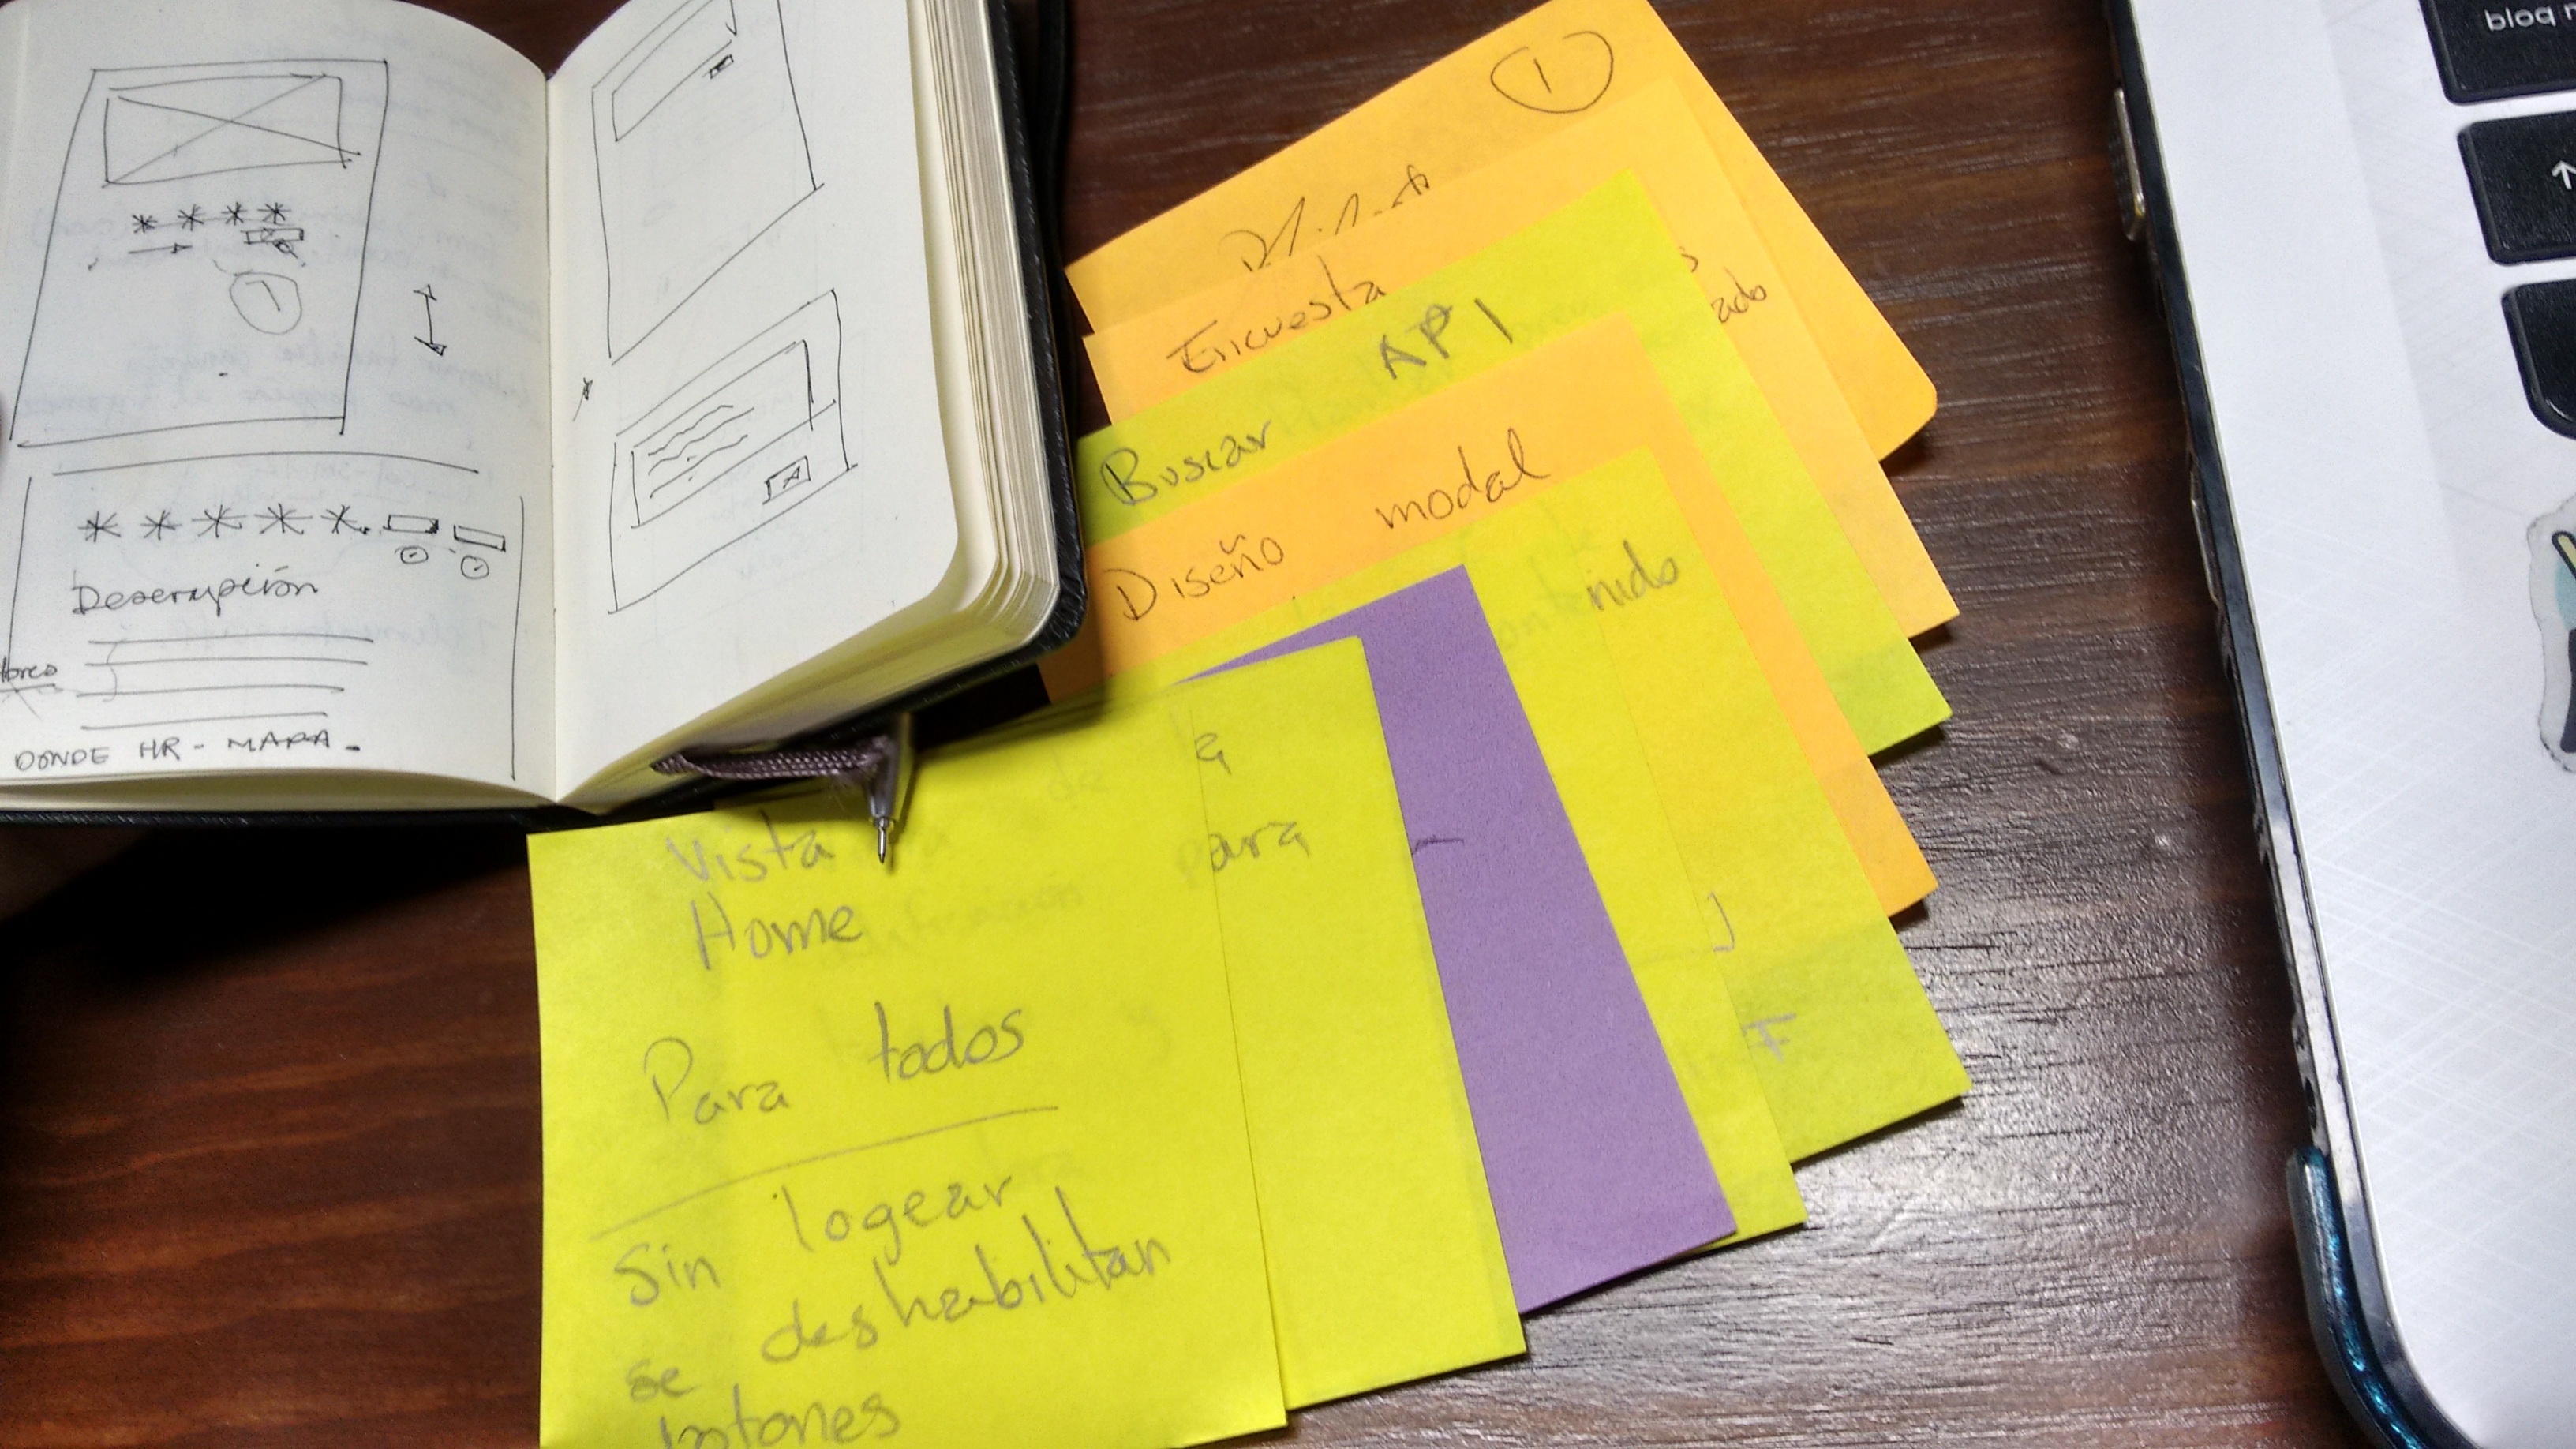 Descripción
DONDE HR - MAPA -
1
Encuesta
ado
Buscar API
Diseño modal
nido
a
para
Vista
Home
Para todos
Sin logear
se deshabilitan
botones
bloq m